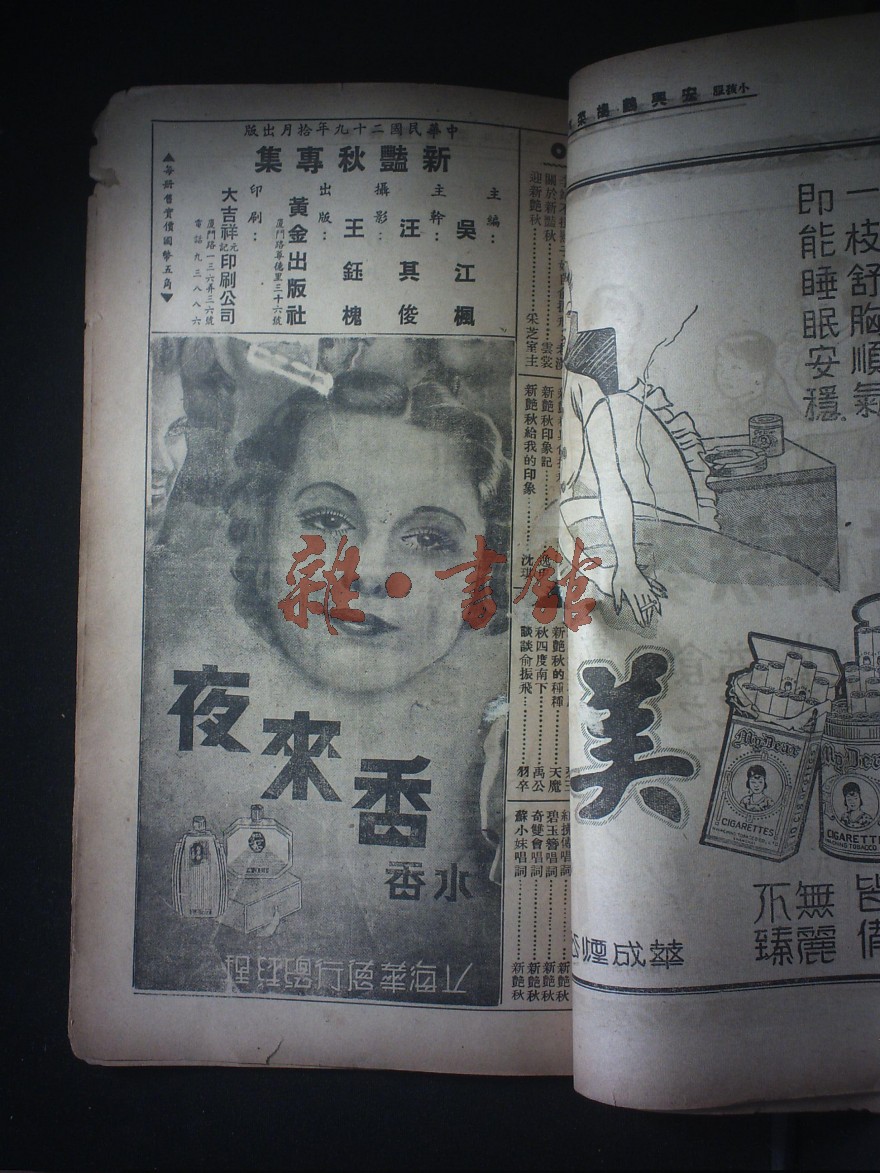 中華民國二十九年拾月出版
新豔秋專集
主編：
吳江楓
主幹：
汪其俊
攝影：
王鈺槐
出版：
黃金出版社
廈門路尊德里三十六號
印刷：
大吉祥元記印刷公司
廈門路一三六弄三六號
電話九三八八六
▲每册售實價國幣五角▼
關於新豔秋
雲裳
迎新艷秋
采芝室主
新艷秋印象記
新艷秋給我的印象
沈琪
新艷秋的種種
天魔
秋四度南下
禹公
談談俞振飛
羽卒
碧玉簪唱詞
新艷秋
奇雙會唱詞
新艷秋
蘇小妹唱詞
新艷秋
夜來香
香水
雜·書館
小孩服
宏興鷓鴣菜
一枝舒胸順氣
即能睡眠安穩
美
My Dear
CIGARETTES
My Dear
CIGARETTE
皆備
無麗
不臻
華成煙